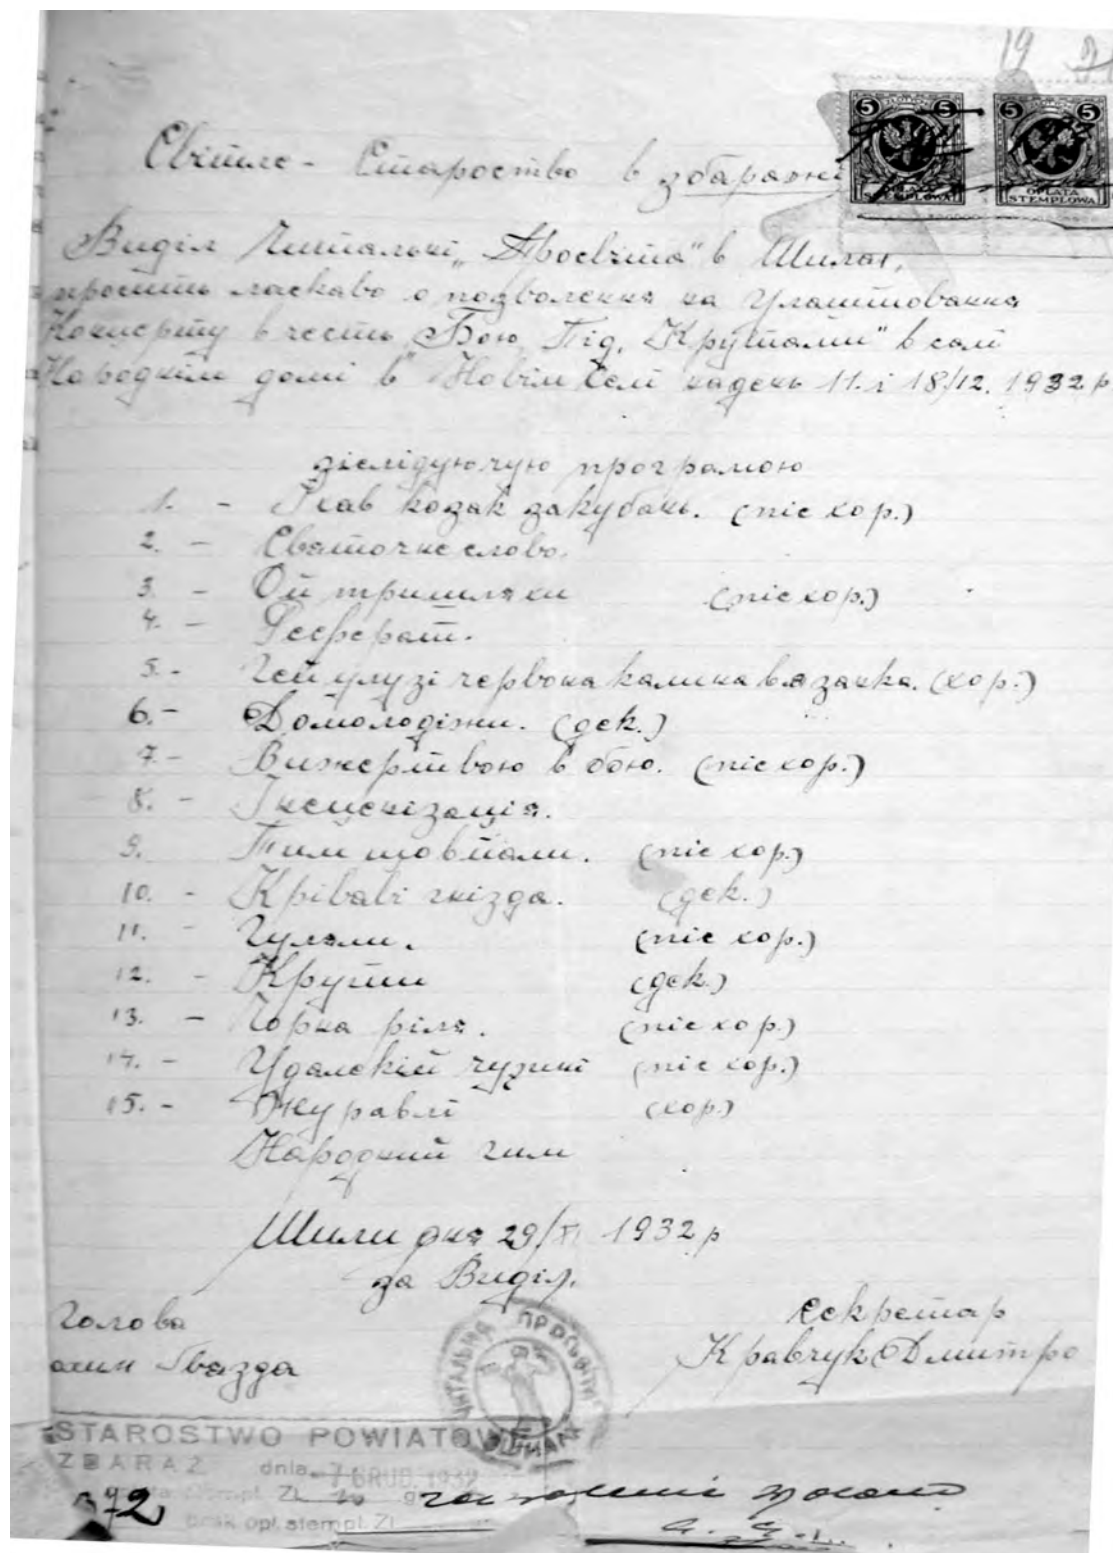 19
5 5 5 5
OPŁATA
STEMPLOWA STEMPLOWA
Світле - Староство в Збаражі
Виділ Читальні „Просвіта" в Шилах,
просить ласкаво о позволення на Улаштовання
Концерту в честь Бою Під „Крутами" в сали
Народнім домі в Новім Селі надень 11. і 18/12. 1932 р
зіслідуючую програмою
1. - Їхав козак закубань. (піс хор.)
2. - Святочне слово.
3. - Ой тришляхи (піс хор.)
4. - Реферат.
5. - Гей улузі червона калина вязанка. (хор.)
6. - Домолодіжи. (дек.)
7. - Вижертвою в бою. (піс хор.)
8. - Інсценізація.
9. Тим що впали. (піс хор.)
10. - Кріваві гнізда. (дек.)
11. - Гуляли. (піс хор.)
12. - Крути (дек.)
13. - Чорна ріля. (піс хор.)
14. - Удалекій чужині (піс хор.)
15. - Журавлі (хор.)
Народний гим
Шили дня 29/XI 1932 р
за Виділ.
Голова Секретар
Гвазда Кравчук Дмитро
ЧИТАЛЬНЯ ПРОСЬВІТИ
STAROSTWO POWIATOWE
ZBARAŻ dnia 7 GRUD. 1932
stempl. Zł. 10 g
brak opł. stempl. Zł